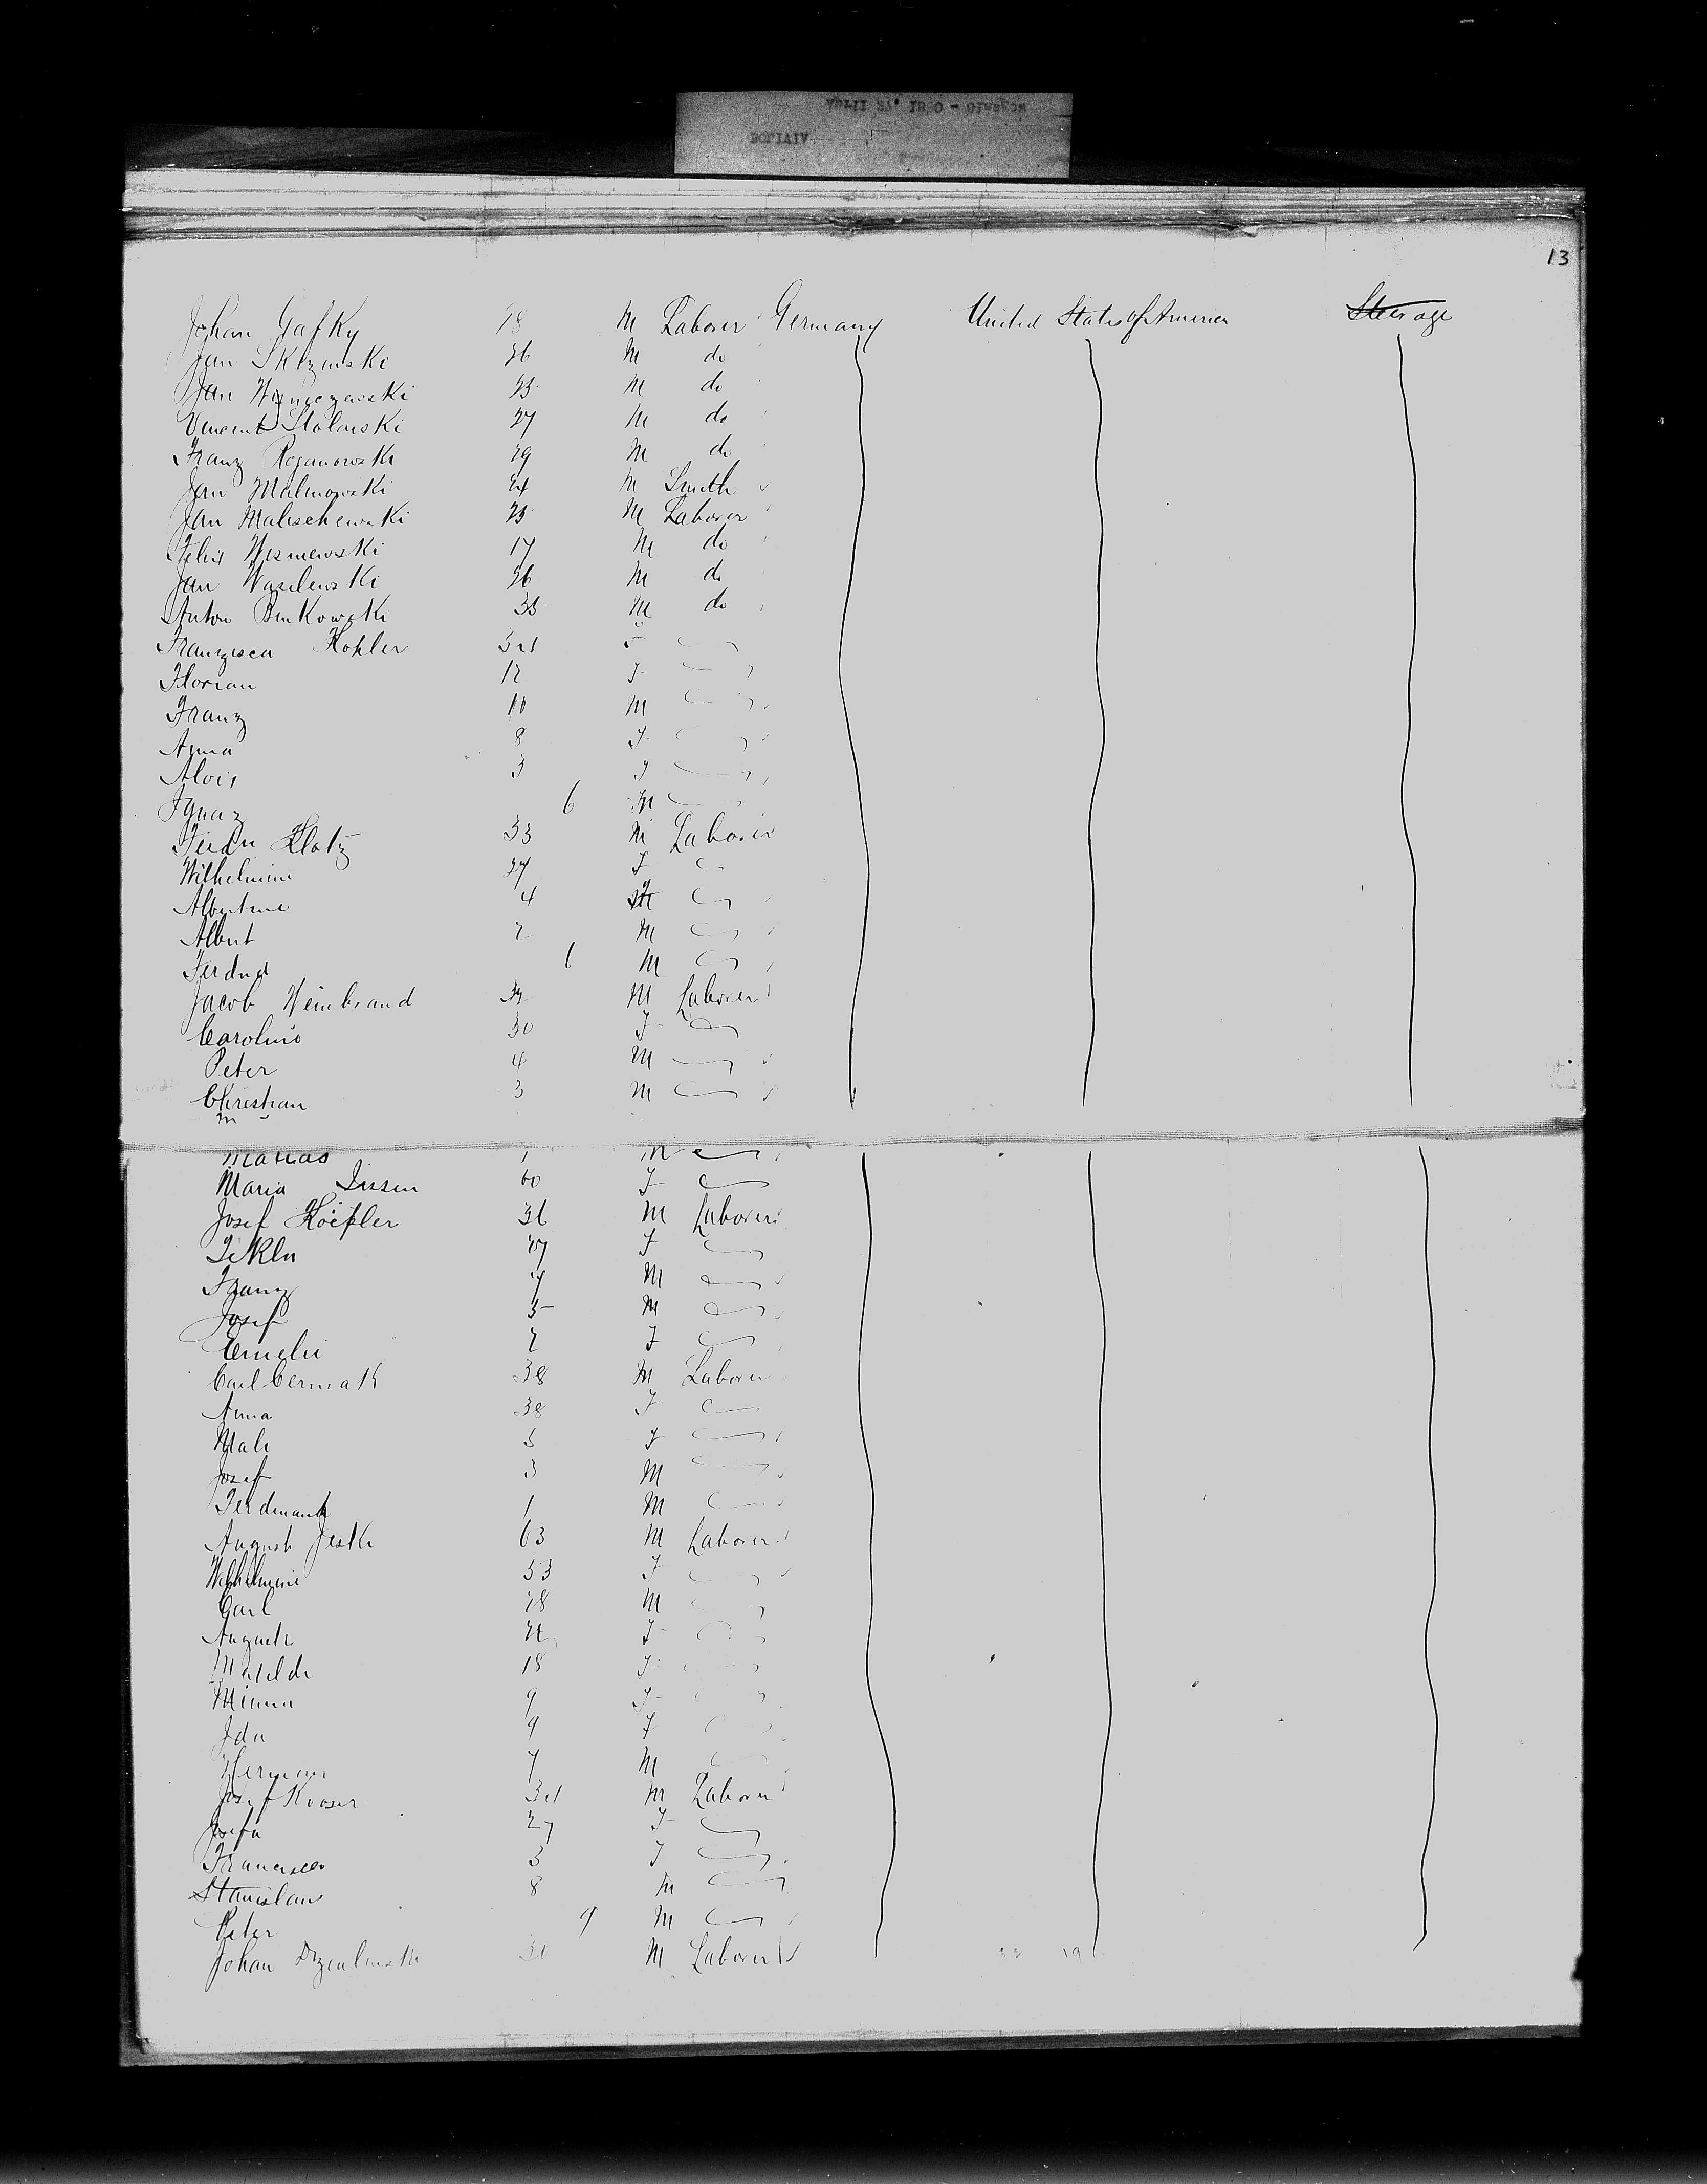 13
Johan Gafky 28 M Laborer Germany United States of America Steerage
Jan Skizinski 26 M do
Jan Wisnieczewski 25 M do
Vincent Stolarski 27 M do
Franz Roganowski 29 M do
Jan Malinowski 24 M Smith
Jan Malischewski 25 M Laborer
Felix Wisniewski 17 M do
Jan Wasilewski 26 M do
Anton Benkowski 35 M do
Franzisca Kohler F
Florian 12 F
Franz 10 M
Anna 8 F
Alois 3 F
Ignaz 6 M
Ferdn Klatz 33 M Laborer
Wilhelmine 27 F
Albertine 4 F
Albert 2 M
Ferdnd 6 M
Jacob Weinbrand M Laborer
Caroline 30 F
Peter 4 M
Christian 3 M
Matias 1 M
Maria 60 F
Josef 36 M Laborer
Tekla 27 F
Franz 7 M
Josef 5 M
Emelie 2 F
Carl Cermak 38 M Laborer
Anna 38 F
Mali 5 F
Josef 3 M
Ferdinand 1 M
August Jeske 63 M Laborer
Wilhelmine 53 F
Carl 28 M
Auguste F
Matilde 18 F
Minna 9 F
Ida 9 F
Herman 7 M
Josef M Laborer
Josefa 27 F
Francisca 3 F
Stanislaus 8 M
Peter 9 M
Johan 30 M Laborer